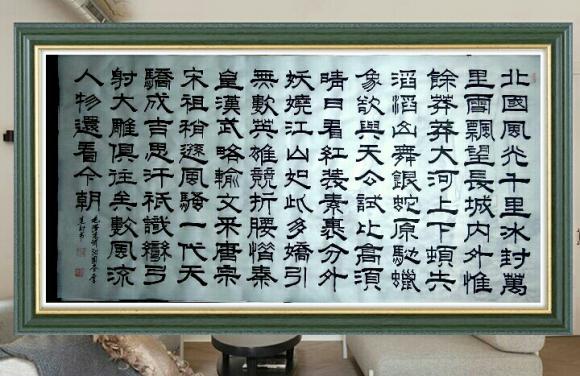 北國風光千里冰封萬
里雪飄望長城內外惟
餘莽莽大河上下頓失
滔滔山舞銀蛇原馳蠟
象欲與天公試比高須
晴日看紅裝素裹分外
妖嬈江山如此多嬌引
無數英雄競折腰惜秦
皇漢武略輸文采唐宗
宋祖稍遜風騷一代天
驕成吉思汗祇識彎弓
射大雕俱往矣數風流
人物還看今朝
毛澤東詞沁園春雪